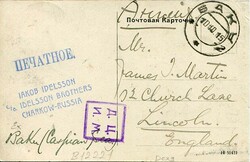 Почтовая Карточка
БАКУ
ПЕЧАТНОЕ.
JAKOB IDELSSON
IDELSSON BROTHERS
CHARKOW-RUSSIA
Mr.
James I. Martin
Church Lane
Lincoln
England
Ex
Baku/Caspian
Д.Ц.
И.М.